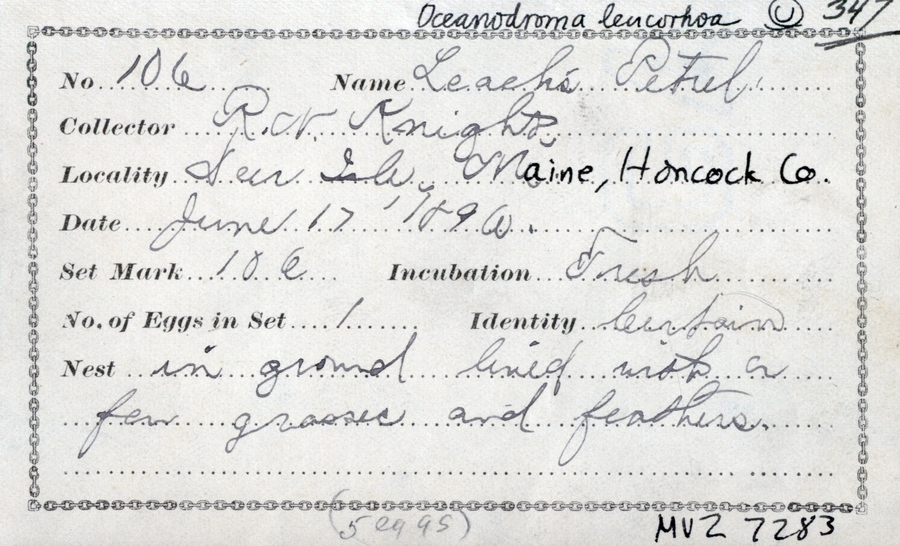 Oceanodroma leucorhoa U 347
No. 106 Name Leach's Petrel.
Collector Knights.
Locality Deer Isle, Maine, Hancock Co.
Date June 17 1896.
Set Mark 106 Incubation Fresh
No. of Eggs in Set 1 Identity Certain
Nest in ground lined with a
few grasses and feathers.
(5 eggs)
MVZ 7283